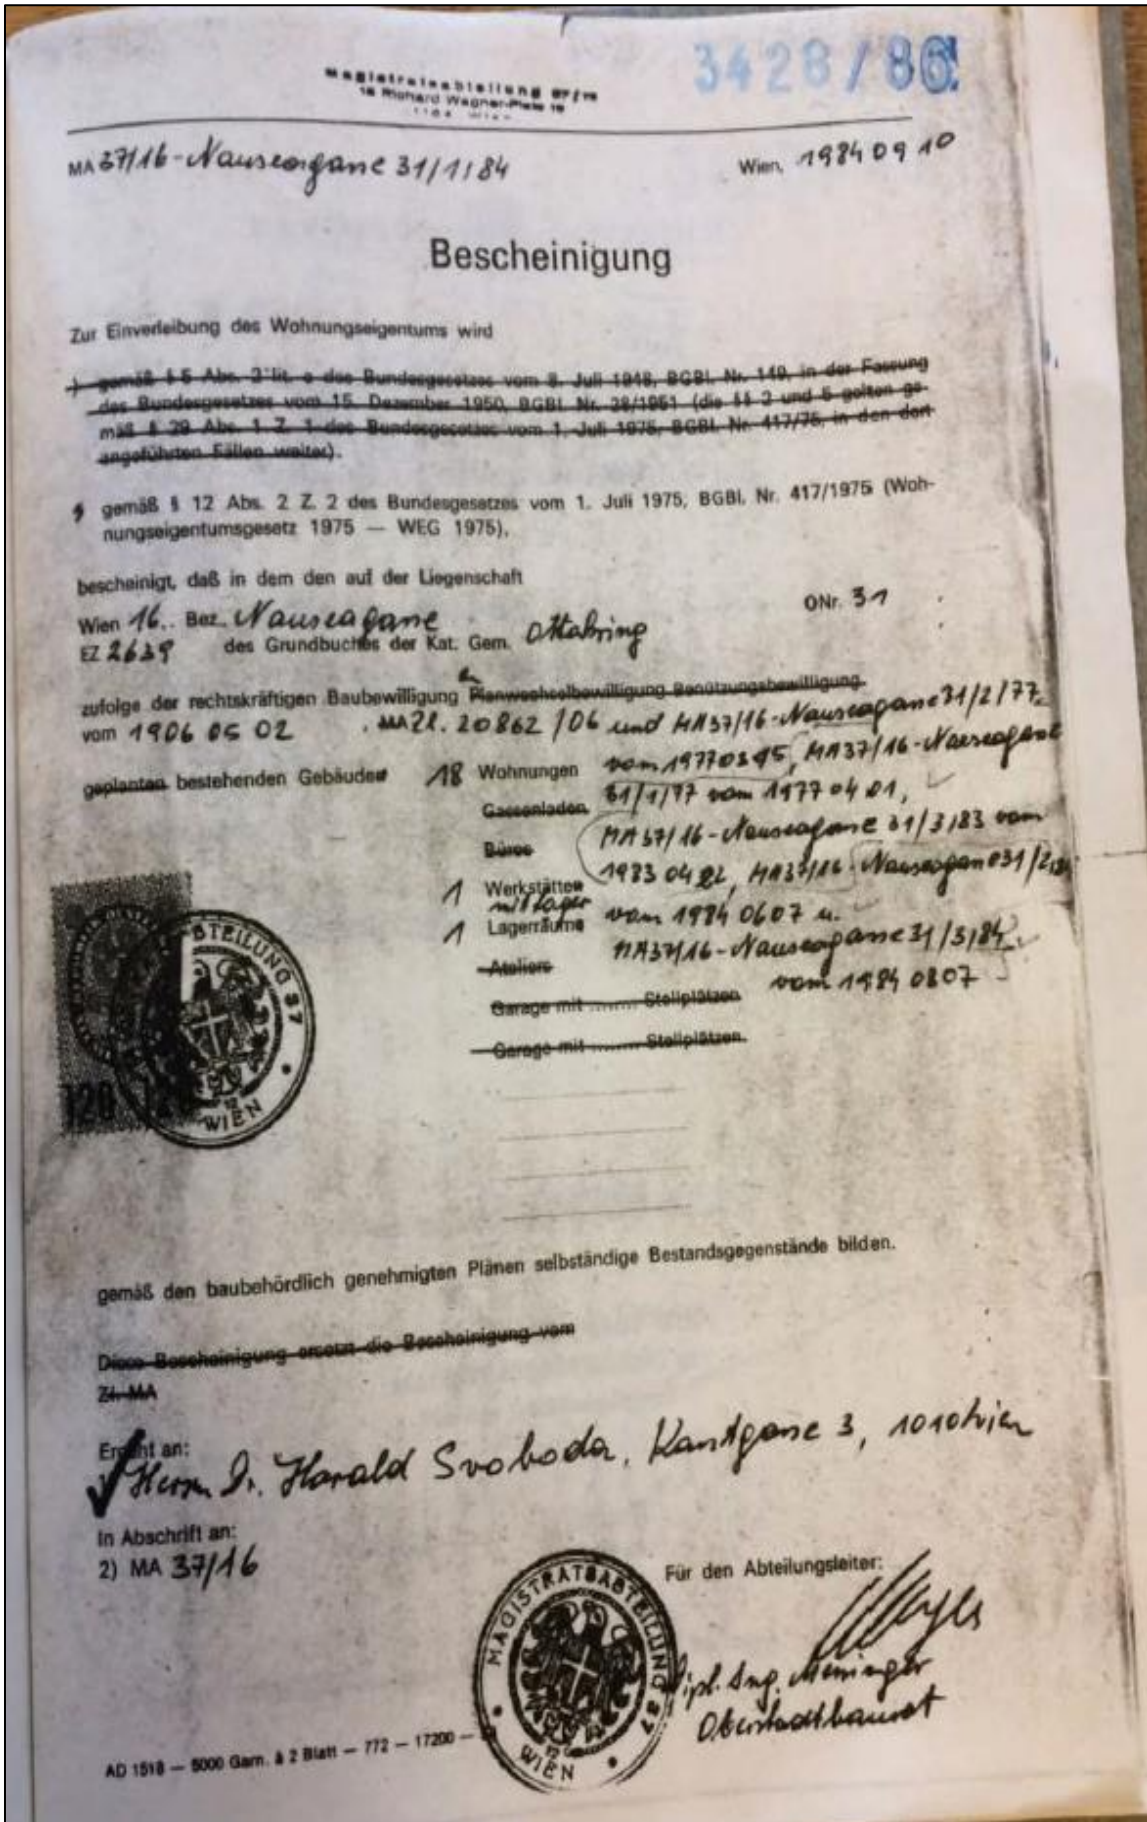 3428/86
Magistratsabteilung 37/16
16 Richard Wagner-Platz 19
Wien
MA 37/16 - Nauseagasse 31/1/84 Wien, 1984 09 10
Bescheinigung
Zur Einverleibung des Wohnungseigentums wird
) gemäß § 5 Abs. 2 lit. a des Bundesgesetzes vom 8. Juli 1948, BGBl. Nr. 149, in der Fassung
des Bundesgesetzes vom 15. Dezember 1950, BGBl. Nr. 28/1951 (die §§ 2 und 5 gelten ge-
mäß § 29 Abs. 1 Z. 1 des Bundesgesetzes vom 1. Juli 1975, BGBl. Nr. 417/75, in den dort
angeführten Fällen weiter).
gemäß § 12 Abs. 2 Z. 2 des Bundesgesetzes vom 1. Juli 1975, BGBl. Nr. 417/1975 (Woh-
nungseigentumsgesetz 1975 — WEG 1975),
bescheinigt, daß in dem den auf der Liegenschaft
Wien 16. Bez. Nauseagasse ONr. 31
EZ 2639 des Grundbuches der Kat. Gem. Ottakring
zufolge der rechtskräftigen Baubewilligung en Planwechselbewilligung Benützungsbewilligung
vom 1906 05 02, MA Zl. 20862/06 und MA37/16-Nauseagasse 31/2/77
geplanten bestehenden Gebäuden 18 Wohnungen vom 1977 03 15, MA37/16-Nauseagasse
Gassenladen 31/1/77 vom 1977 04 01,
Büros MA37/16-Nauseagasse 31/3/83 vom
1983 04 22, MA37/16-Nauseagasse 31/2/84
1 Werkstätten
mit Lager vom 1984 06 07 u.
1 Lagerräume
MA37/16-Nauseagasse 31/3/84
Ateliers
vom 1984 08 07
Garage mit ........ Stellplätzen
Garage mit ........ Stellplätzen
ABTEILUNG 37
WIEN
120
gemäß den baubehördlich genehmigten Plänen selbständige Bestandsgegenstände bilden.
Diese Bescheinigung ersetzt die Bescheinigung vom
Zl. MA
Ergeht an:
Herrn Dr. Harald Svoboda, Kantgasse 3, 1010 Wien
In Abschrift an:
2) MA 37/16
Für den Abteilungsleiter:
MAGISTRATSABTEILUNG 37
WIEN
Dipl. Ing. Meninger
Oberstadtbaurat
AD 1518 — 5000 Garn. à 2 Blatt — 772 — 17200 —